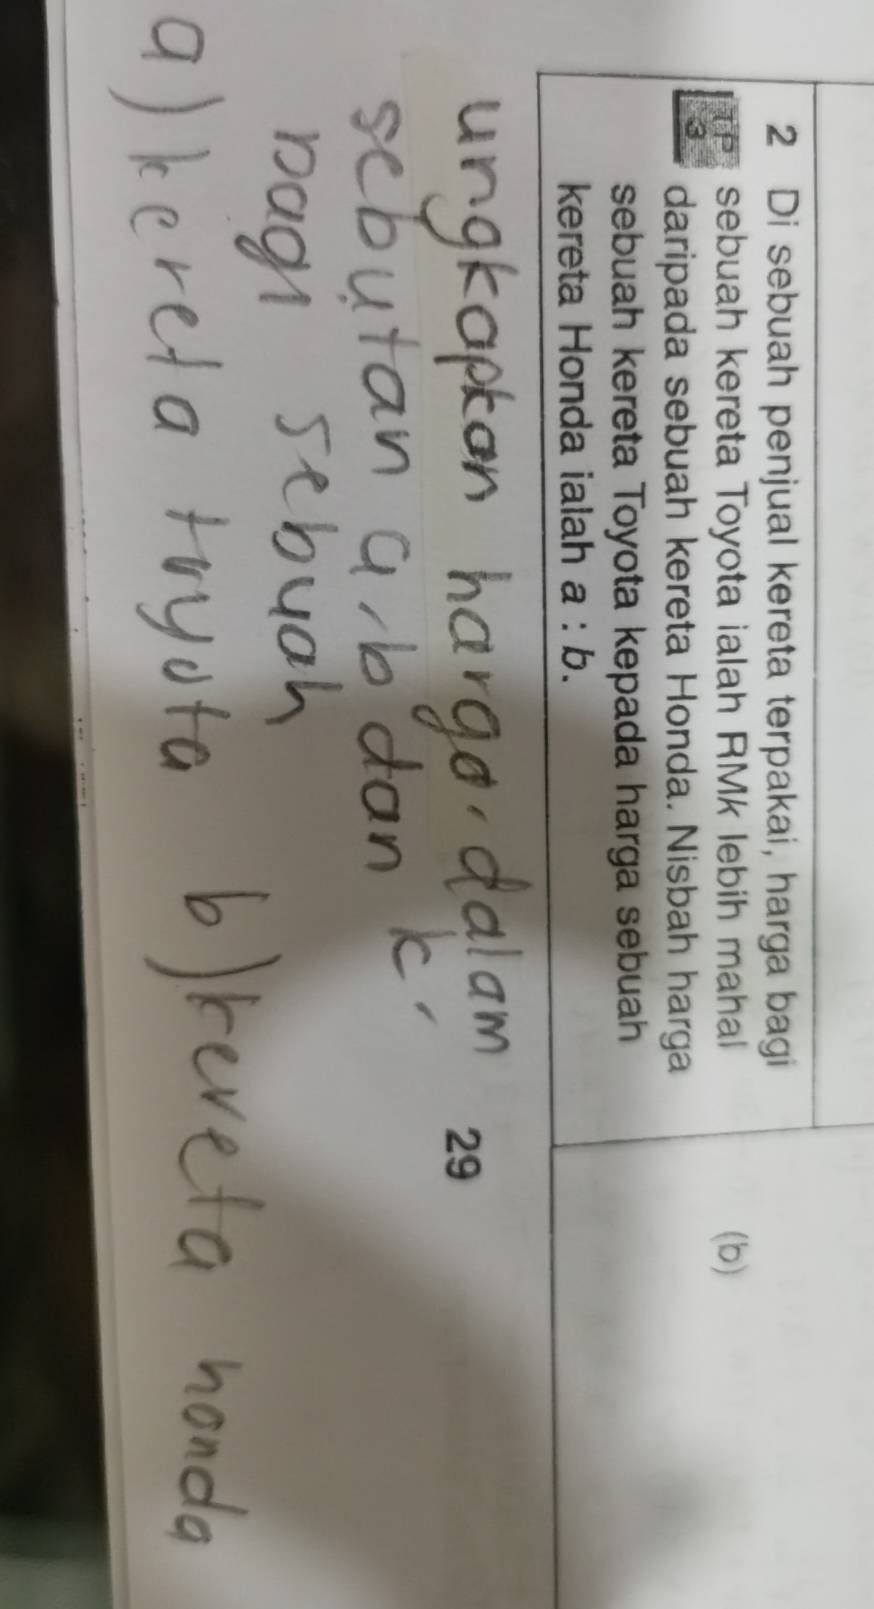 2 Di sebuah penjual kereta terpakai, harga bagi
TP 3 sebuah kereta Toyota ialah RMk lebih mahal
daripada sebuah kereta Honda. Nisbah harga
sebuah kereta Toyota kepada harga sebuah
kereta Honda ialah a : b.
(b)
29
ungkapkan harga, dalam
sebutan a, b dan k,
bagi sebuah
a) kereta toyota b) kereta honda